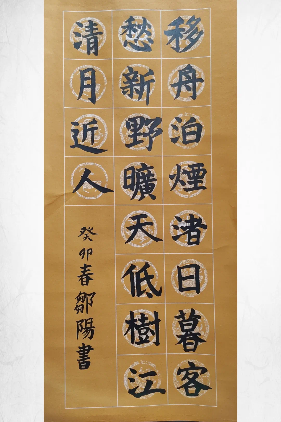 移舟泊煙渚日暮客
愁新野曠天低樹江
清月近人
癸卯春鄒陽書